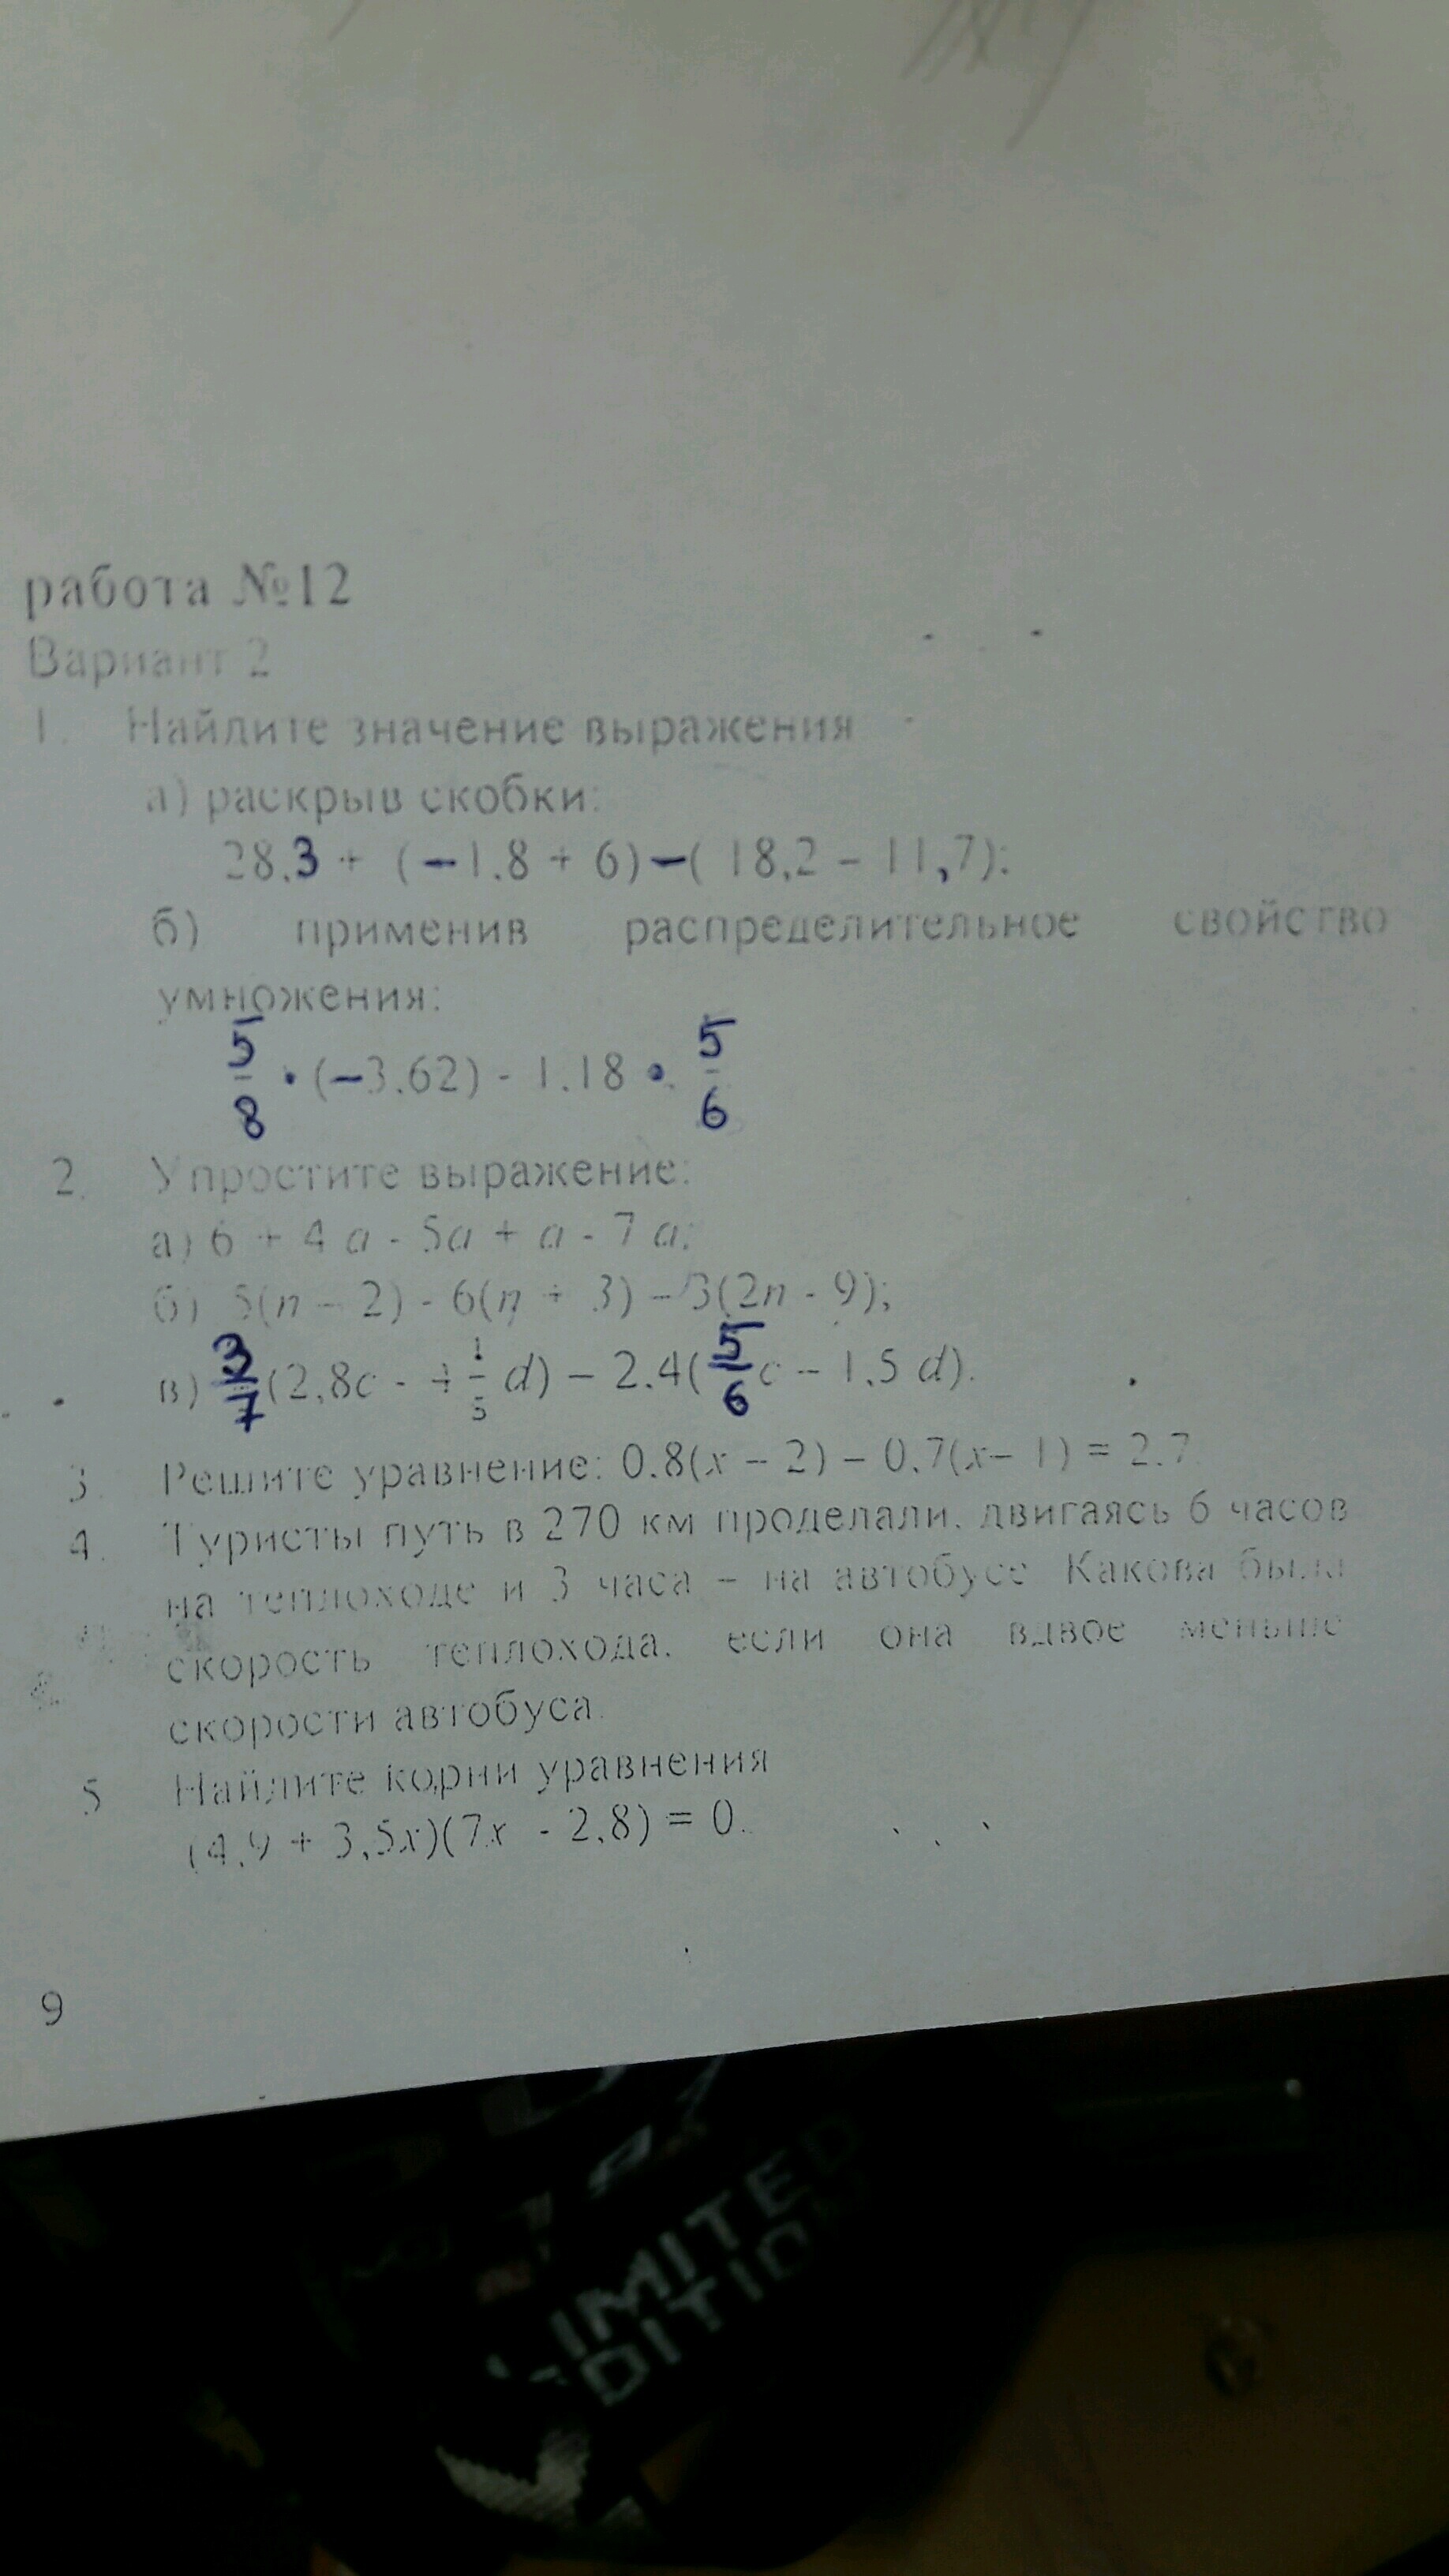 работа №12
Вариант 2
1. Найдите значение выражения
а) раскрыв скобки:
28,3 + (−1,8 + 6)−( 18,2 − 11,7);
б) применив распределительное свойство
умножения:
5/8 · (−3,62) - 1,18 · 5/6
2. Упростите выражение:
а) 6 + 4 a - 5a + a - 7 a;
б) 5(n − 2) - 6(n + 3) − 3(2n - 9);
в) 3/7 (2,8c - 4 1/5 d) − 2,4( 5/6 c − 1,5 d).
3. Решите уравнение: 0,8(x − 2) − 0,7(x− 1) = 2,7.
4. Туристы путь в 270 км проделали, двигаясь 6 часов
на теплоходе и 3 часа − на автобусе. Какова была
скорость теплохода, если она вдвое меньше
скорости автобуса.
5 Найдите корни уравнения
(4,9 + 3,5x)(7x - 2,8) = 0.
9
LIMITED
EDITION